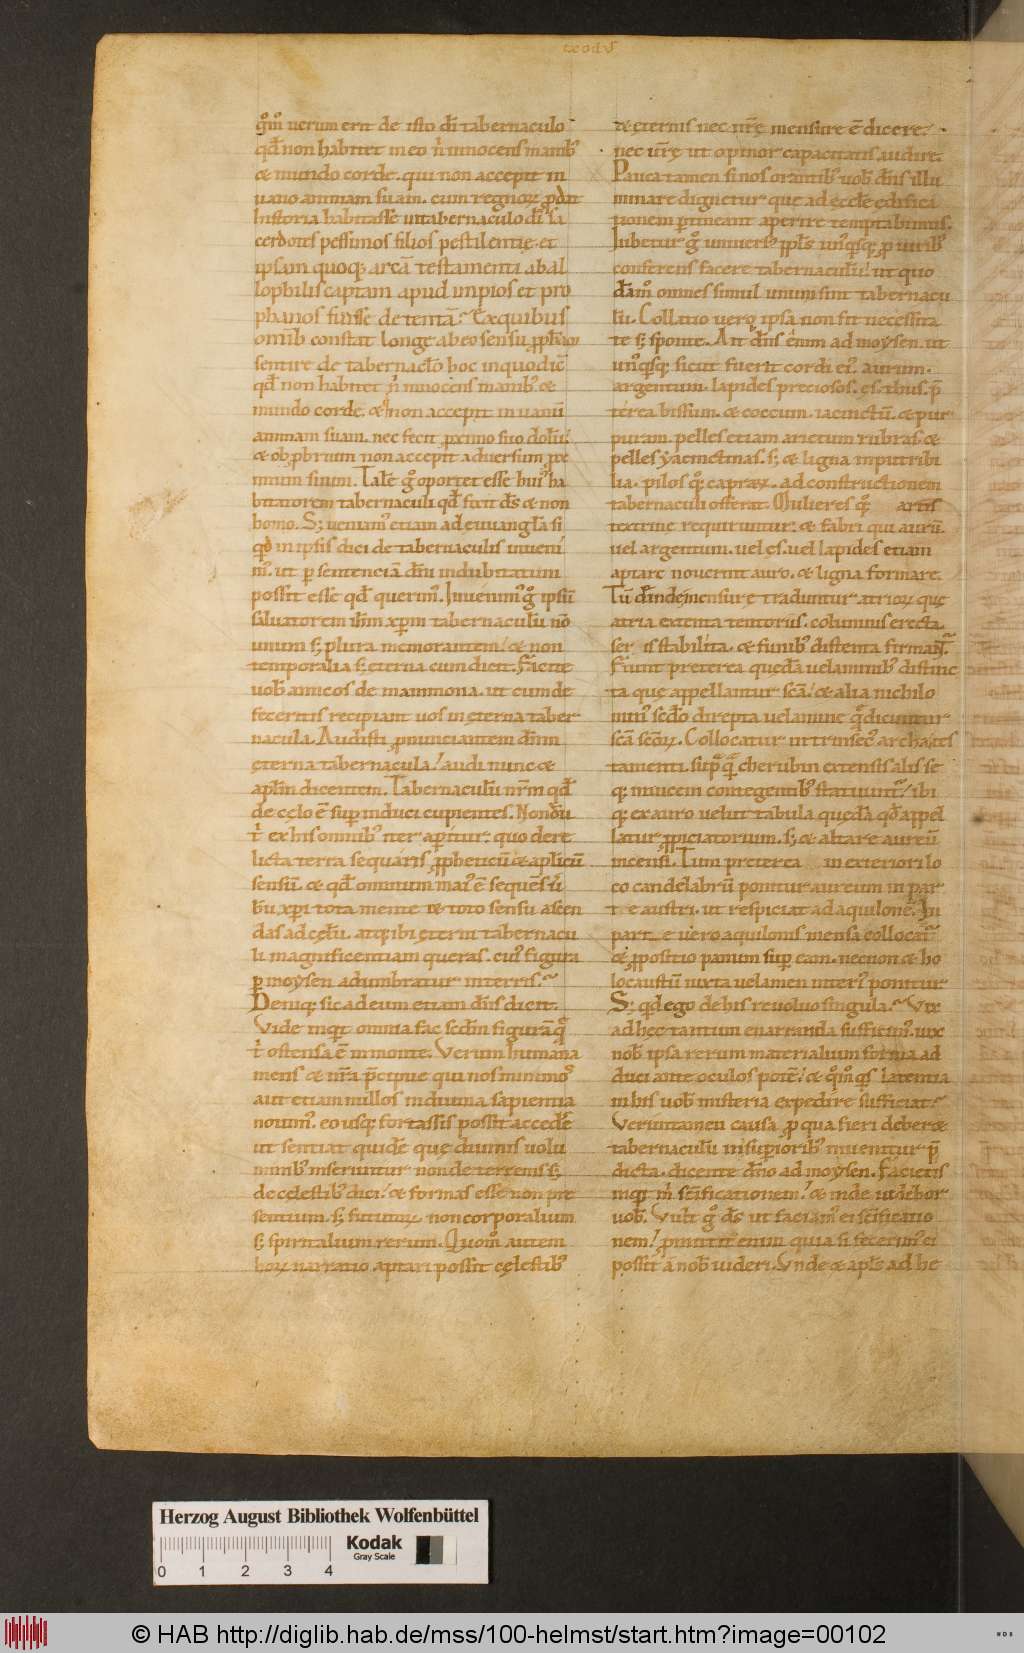 exodus
qm̄ uerum erit de isto dī tabernaculo
qd̄ non habitet in eo n̄ innocens manib;
& mundo corde. qui non accepit in
uano animam suam. cum regnoꝝ prodat
historia habitasse in tabernaculo dī sa
cerdotes pessimos filios pestilentię. et
ipsam quoq; arcā testamenti ab al
lophilis captam apud impios et pro
phanos fuisse detentā. Ex quibus
omīb constat longe ab eo sensu ꝓph̄am
sentire de tabernac̄lo hoc in quo dic̄
qd̄ non habitet n̄ innocens manib; &
mundo corde. & non accepit in uanū
animam suam. nec fecit ꝓximo suo dolū.
& obꝓbrium non accepit aduersum ꝓxi
mum suum. Talē g̊ oportet esse hui; ha
bitatorem tabernaculi qd̄ fixit d̄s & non
homo. S; ueniam; etiam ad euuangl̄a si
quo in ipsis dici de tabernaculis inueni
m;. ut ꝑ sentenciā dn̄i indubitatum
possit esse qd̄ querim;. Inuenim; g̊ ipsū
saluatorem ihm̄ xpm̄ tabernaculū nō
unum s; plura memorantem. & non
temporalia s; ęterna cum dicit. Facite
uob̄ amicos de mammona. ut cum de
feceritis recipiant uos in ęterna taber
nacula. Audisti ꝓnunciantem dn̄m
ęterna tabernacula. audi nunc &
apl̄m dicentem. Tabernaculū nr̄m qd̄
de cęlo ē superindui cupientes. Nondū
t̄ ex his omnib; iter aperitur. quo dere
licta terra sequaris ꝓpheticū & aplicū
sensū. & qd̄ omnium mai; ē sequēs ū
bū xp̄i tota mente & toto sensu ascen
das ad cęlū. atq; ibi ęterni tabernacu
li magnificentiam queras. cui; figura
ꝑ moysen adumbratur in terris.
Deniq; sic ad eum etiam dn̄s dicit.
Vide inqt̄ omnia fac scdm̄ figurā quę
t̄ ostensa ē in monte. Verum humana
mens & nr̄a p̄cipue qui nos minimos
aut etiam nullos in diuina sapientia
nouim;. eo usq; fortassis possit accedere
ut sentiat quidē quę diuinis uolu
minib; inseruntur non de terrenis s;
de cęlestib; dici. & formas esse non pre
sentium. s; futuroꝝ non corporalium
s; spiritalium rerum. Quom̄ autem
horū narratio aptari possit cęlestib;
& ęternis nec nr̄ę mensurę ē dicere.
nec ur̄ę ut opinor capacitatis audire.
Pauca tamen si nos orantib; uob̄ dn̄s illu
minare dignetur quę ad ęccl̄ę edifica
tionem pertineant aperire temptabimus.
Iubetur g̊ uniuers; ppl̄s unusq;sq; ꝓ uirib;
conferens facere tabernaculū. ut quo
dam̄ omnes simul unum sint tabernacu
lū. Collatio uero ipsa non fit necessita
te s; sponte. Ait dn̄s enim ad moysen. ut
unusq;sq; sicut fuerit cordi ei; aurum.
argentum. lapides preciosos. es. thus. p̄
terea bissum. & coccum. iacinctū. & pur
puram. pelles etiam arietum rubras. &
pelles yacinctinas. s; & ligna inputribi
lia. pilos q; capraꝝ. ad constructionem
tabernaculi offerat. Mulieres q; artis
textrine requiruntur. & fabri qui aurū.
uel argentum. uel ęs. uel lapides etiam
aptare nouerint auro. & ligna formare.
Tū deinde mensurę traduntur atrioꝝ quę
atria extenta tentoriis. columnis erecta.
seris stabilita. & funib; distenta firmant.
Fiunt preterea quedā uelaminib; distinc
ta quę appellantur scā. & alia nichilo
min; scdo direpta uelamine quę dicuntur
scā scōꝝ. Collocatur intrinsec; archa tes
tamenti. supra quā cherubin extensis alis se
q; inuicem contegentib; statuunt. ibi
q; ex auro uelut tabula quedā qd̄ appel
latur ꝓpiciatorium. s; & altare aureū
incensi. Tum preterea in exteriori lo
co candelabrū ponitur aureum in par
te austri. ut respiciat ad aquilonē. In
parte uero aquilonis mensa collocat̄
& ꝓpositio panum super eam. necnon & ho
locaustū iuxta uelamen interi; ponitur
S; qd̄ ego de his reuoluo singula. Vix
ad hęc tantum enarranda sufficim;. uix
nob̄ ipsa rerum materialium forma ad
duci ante oculos potē. & qm̄ qs latentia
in his uob̄ misteria expedire sufficiat.
Veruntamen causa ꝓ qua fieri deber&
tabernaculū in superiorib; inuenitur p̄
dicta. dicente dn̄o ad moysen. Facietis
inqt̄ m̄ scīficationem. & inde uidebor
uob̄. Vult g̊ d̄s ut faciam; ei scīficatio
nem. ꝓmittit enim quia si fecerim; ei
possit a nob̄ uideri. Vnde & apl̄s ad he
Herzog August Bibliothek Wolfenbüttel
0 1 2 3 4
Kodak
Gray Scale
© HAB http://diglib.hab.de/mss/100-helmst/start.htm?image=00102